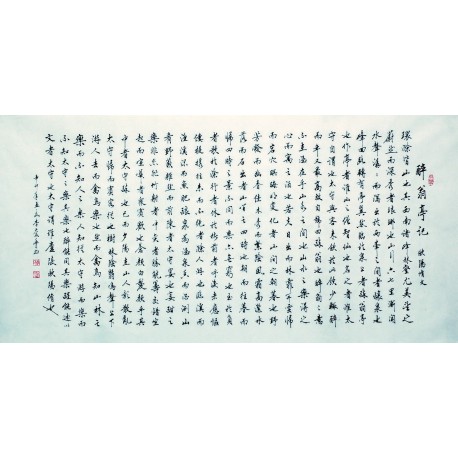 醉翁亭记 欧阳修文
環滁皆山也其西南諸峰林壑尤美望之
蔚然而深秀者琅琊也山行六七里漸聞
水聲潺潺而瀉出於兩峰之間者釀泉也
峰回路轉有亭翼然臨於泉上者醉翁亭
也作亭者誰山之僧智仙也名之者誰太
守自謂也太守與客來飲於此飲少輒醉
而年又最高故自號曰醉翁也醉翁之意
不在酒在乎山水之間也山水之樂得之
心而寓之酒也若夫日出而林霏開雲歸
而岩穴暝晦明變化者山間之朝暮也野
芳發而幽香佳木秀而繁陰風霜高潔水
落而石出者山間之四時也朝而往暮而
歸四時之景不同而樂亦無窮也至於負
者歌於途行者休於樹前者呼後者應傴
僂提攜往來而不絕者滁人游也臨溪而
漁溪深而魚肥釀泉為酒泉香而酒洌山
肴野蔌雜然而前陳者太守宴也宴酣之
樂非絲非竹射者中弈者勝觥籌交錯坐
起而喧嘩者眾賓歡也蒼顏白髮頹乎其
中者太守醉也已而夕陽在山人影散亂
太守歸而賓客從也樹林陰翳鳴聲上下
游人去而禽鳥樂也然而禽鳥知山林之
樂而不知人之樂人知從太守游而樂而
不知太守之樂其樂也醉能同其樂醒能述以
文者太守也太守謂誰廬陵歐陽修也